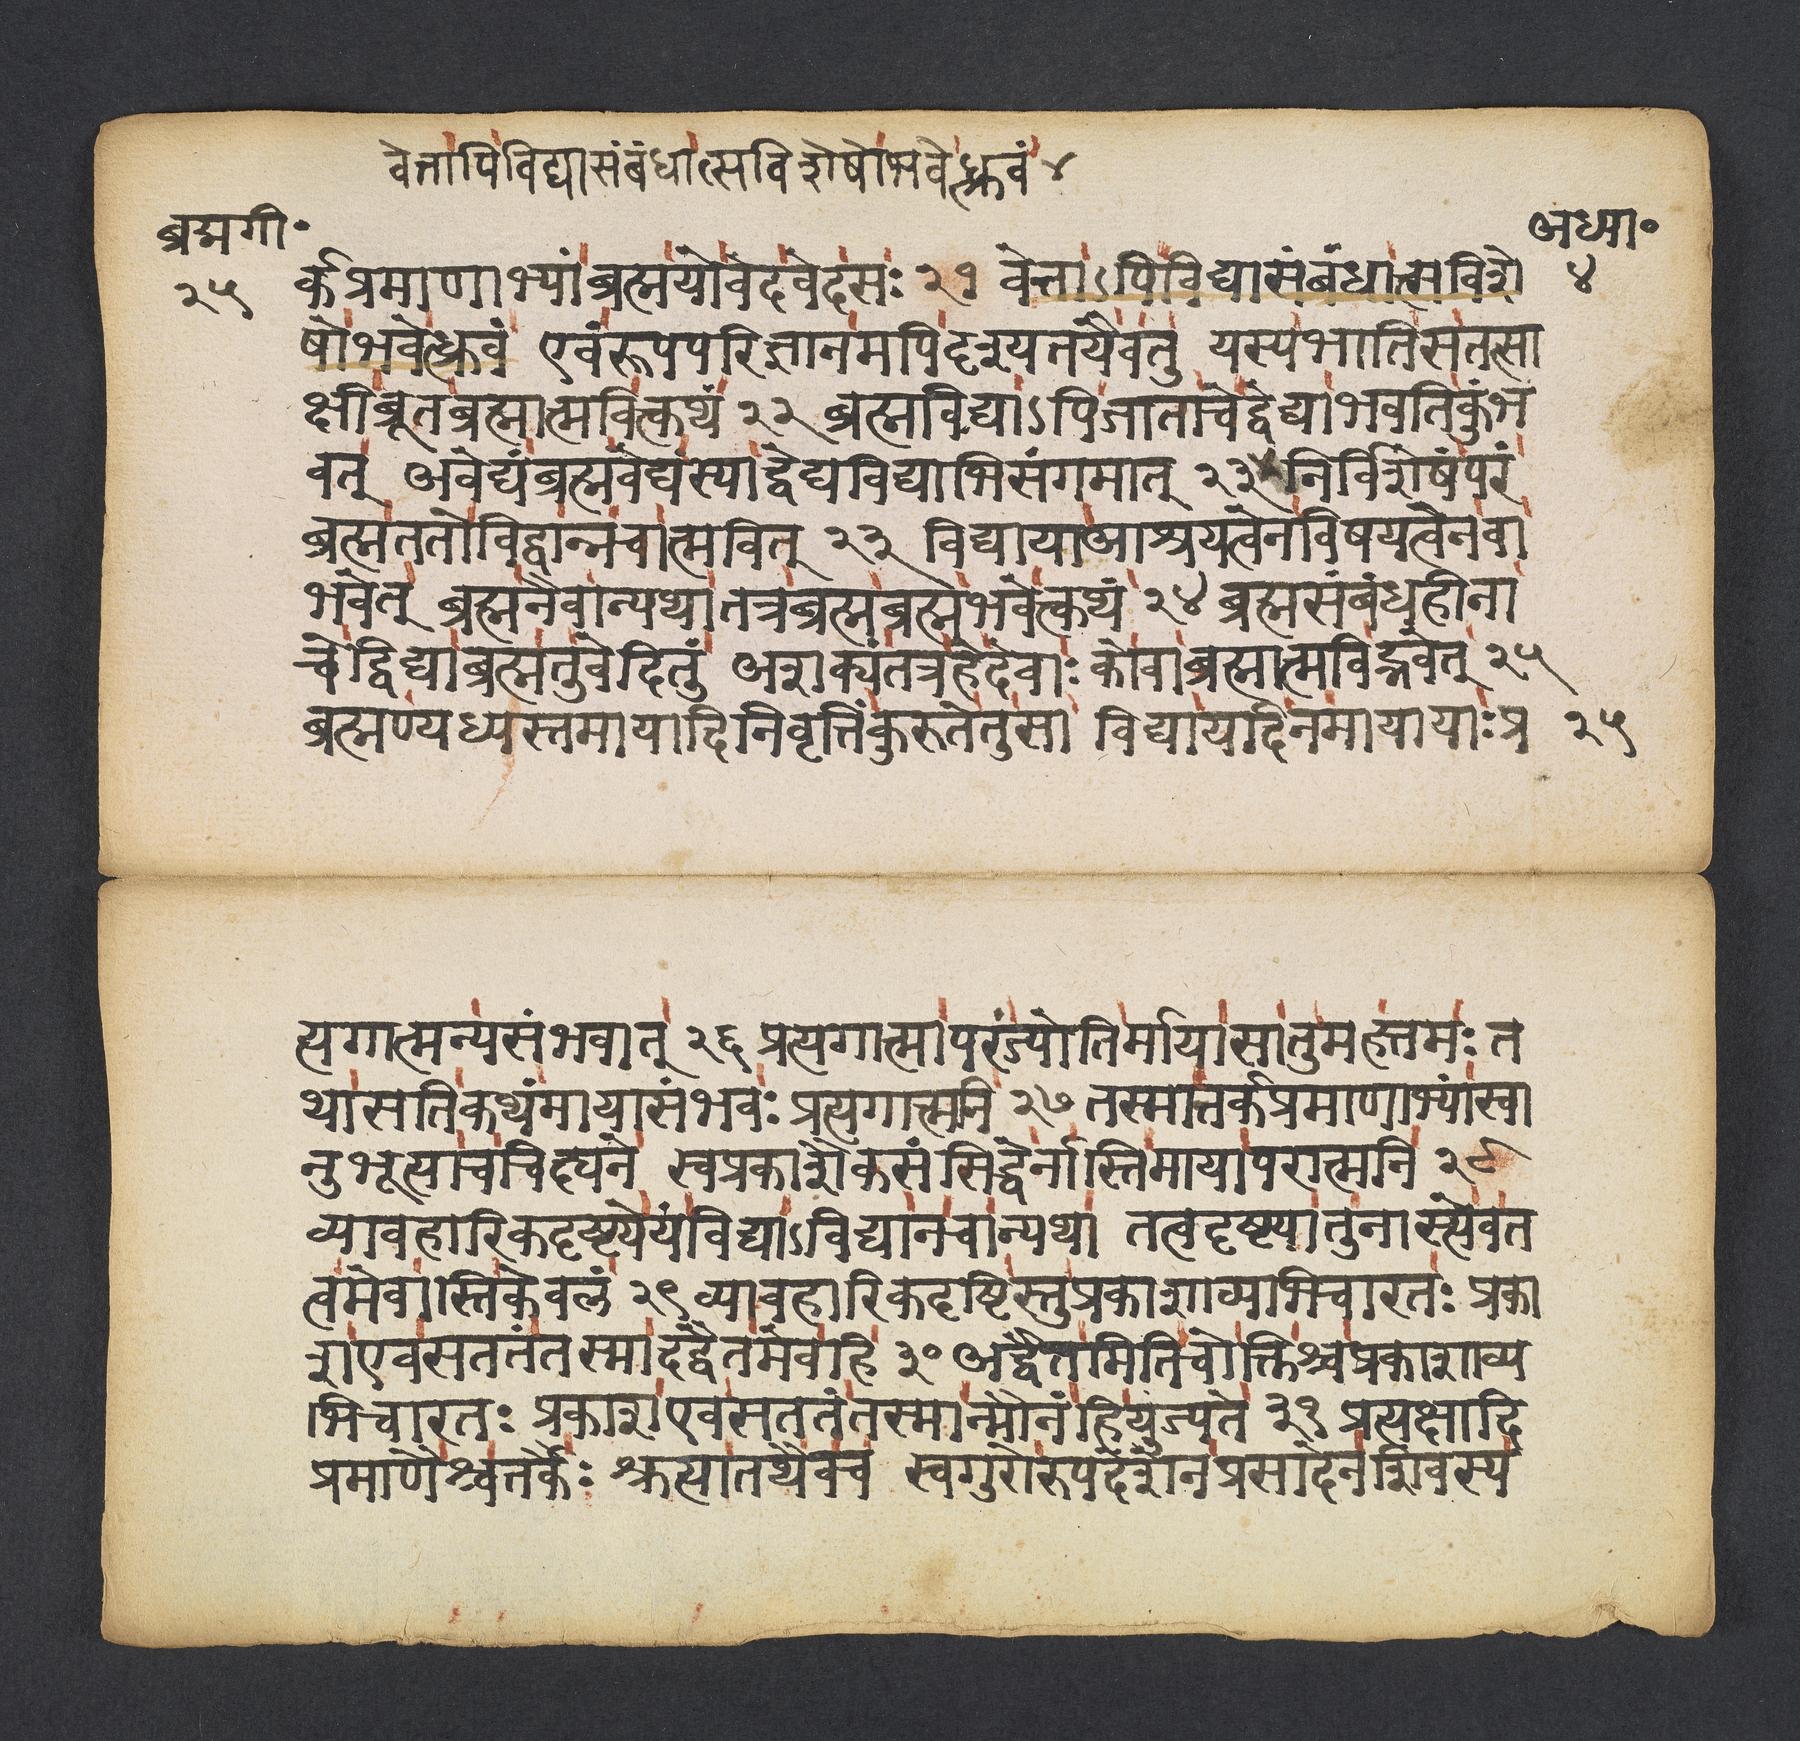 वेत्तापिविद्यासंबंधात्सविशेषोभवेत्ध्रुवं ४
ब्रह्मगी॰
अध्या॰
२५
र्कप्रमाणाभ्यांब्रह्मयोवेदवेदसः २१ वेत्ताऽपिविद्यासंबंधात्सविशे
४
षोभवेत्ध्रुवं एवंरूपपरिज्ञानमपिदृश्यतयैवतु यस्यभातिसतत्सा
क्षीब्रूतब्रह्मात्मवित्कथं २२ ब्रह्मविद्याऽपिजाताचेद्वेद्याभवतिकुंभ
वत् अवेद्यंब्रह्मवेद्यंस्याद्वेद्यविद्याभिसंगमात् २३ निर्विशेषंपरं
ब्रह्मततोविद्वान्नचात्मवित् २३ विद्यायाआश्रयत्वेनविषयत्वेनवा
भवेत् ब्रह्मनैवान्यथातत्रब्रह्मब्रह्मभवेत्कथं २४ ब्रह्मसंबंधहीना
चेद्विद्याब्रह्मतुवेदितुं अशक्यंतत्रहेदेवाः कोवाब्रह्मात्मविद्भवेत् २५
ब्रह्मण्यध्यस्तमायादिनिवृत्तिंकुरुतेतुसा विद्यायदिनमायायाःप्र
२५
त्यगात्मन्यसंभवात् २६ प्रत्यगात्मापरंज्योतिर्मायासातुमहत्तमः त
थासतिकथंमायासंभवः प्रत्यगात्मनि २७ तस्मात्तर्कप्रमाणाभ्यांस्वा
नुभूत्याचचिद्घने स्वप्रकाशैकसंसिद्धेर्नास्तिमायापरात्मनि २८
व्यावहारिकदृष्ट्येयंविद्याऽविद्यानचान्यथा तत्वदृष्ट्यातुनास्त्येवत
त्वमेवास्तिकेवलं २९ व्यावहारिकदृष्टिस्तुप्रकाशाव्याभिचारतः प्रका
शएवसततंतस्मादद्वैतमेवहि ३० अद्वैतमितिचोक्तिश्चप्रकाशाव्य
भिचारतः प्रकाशएवसततंतस्मान्मौनंहियुज्यते ३१ प्रत्यक्षादि
प्रमाणैश्चतर्कैः श्रुत्यातथैवच स्वगुरोरुपदेशेनप्रसादेनशिवस्य